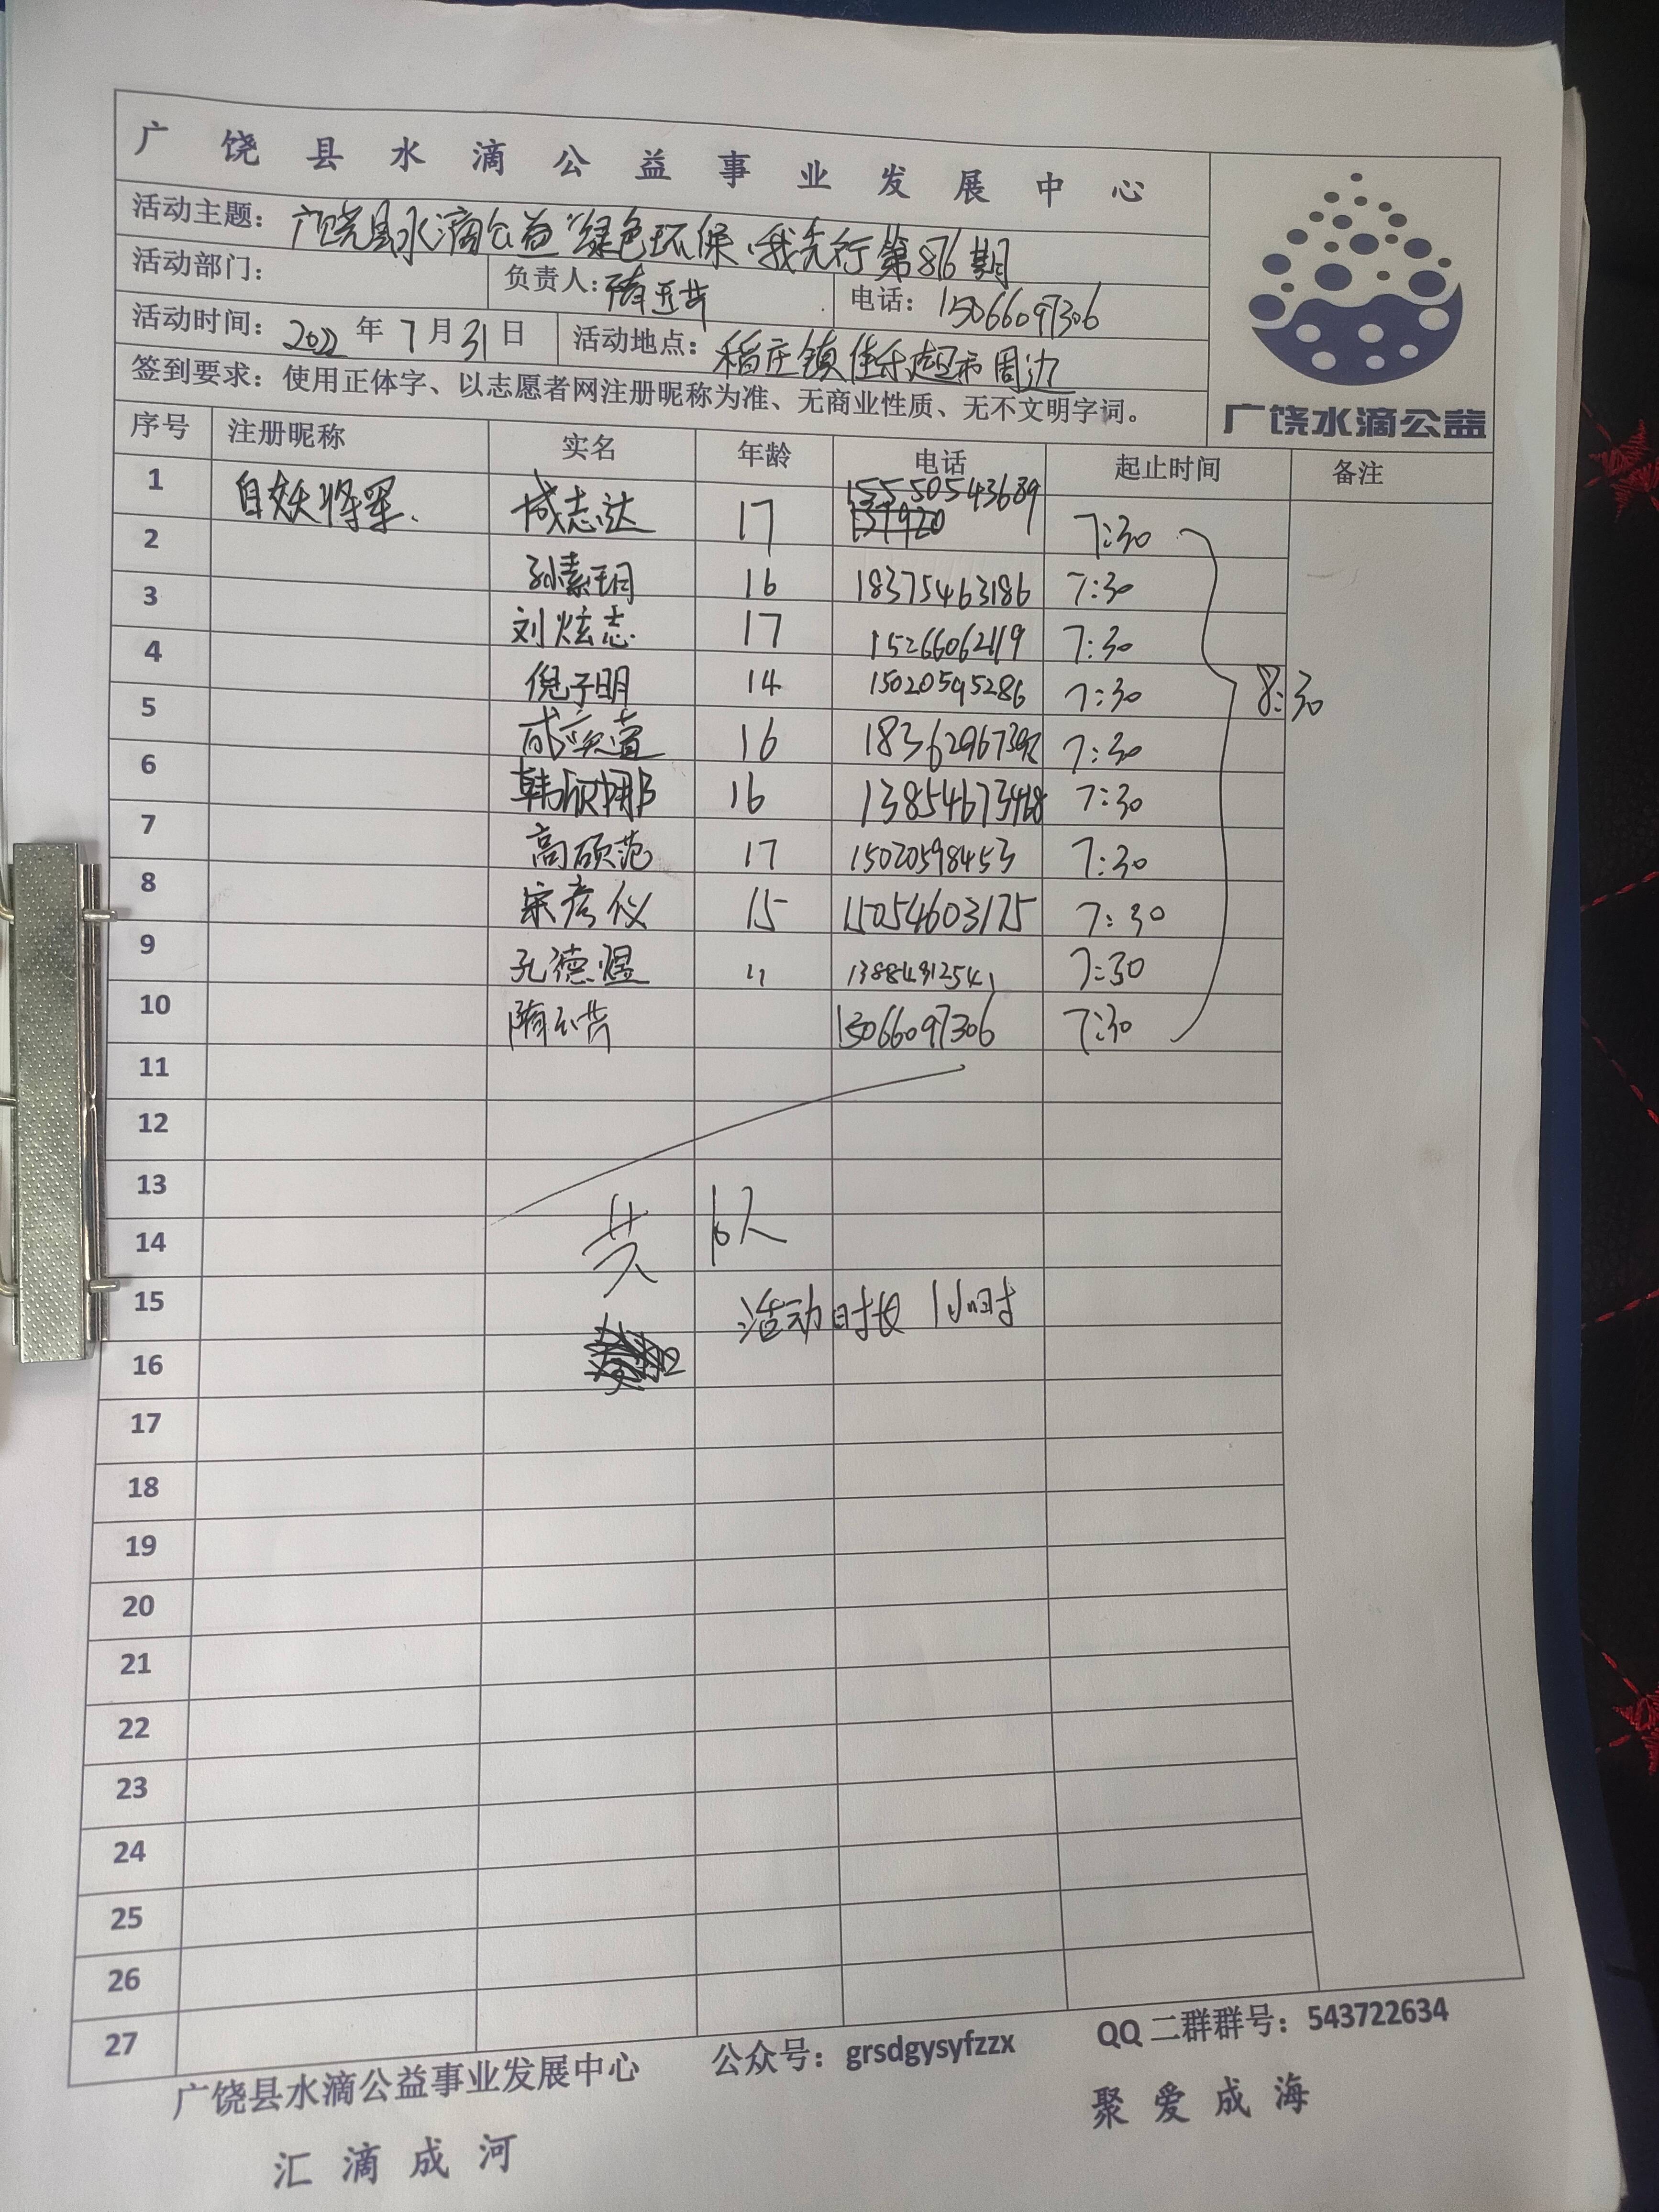 广饶县水滴公益事业发展中心
活动主题：广饶县水滴公益“绿色环保、我先行第876期
活动部门： 负责人： 电话：15066097306
活动时间：2022年7月31日 活动地点：稻庄镇佳乐超市周边
签到要求：使用正体字、以志愿者网注册昵称为准、无商业性质、无不文明字词。
广饶水滴公益
序号 注册昵称 实名 年龄 电话 起止时间 备注
1 自妖将军. 成志达 17 15550543689 7:30
2 孙素玥 16 18375463186 7:30
3 刘炫志 17 15266062119 7:30
4 倪子明 14 15020595286 7:30 8:30
5 16 7:30
6 韩欣娜 16 13854673468 7:30
7 高硕范 17 15020598453 7:30
8 宋彦仪 15 15054603175 7:30
9 孔德煜 11 13884912541 7:30
10 15066097306 7:30
11
12
13
14 共 10人
15 活动时长 1小时
16
17
18
19
20
21
22
23
24
25
26
27
广饶县水滴公益事业发展中心 公众号：grsdgysyfzzx QQ二群群号：543722634
汇滴成河 聚爱成海